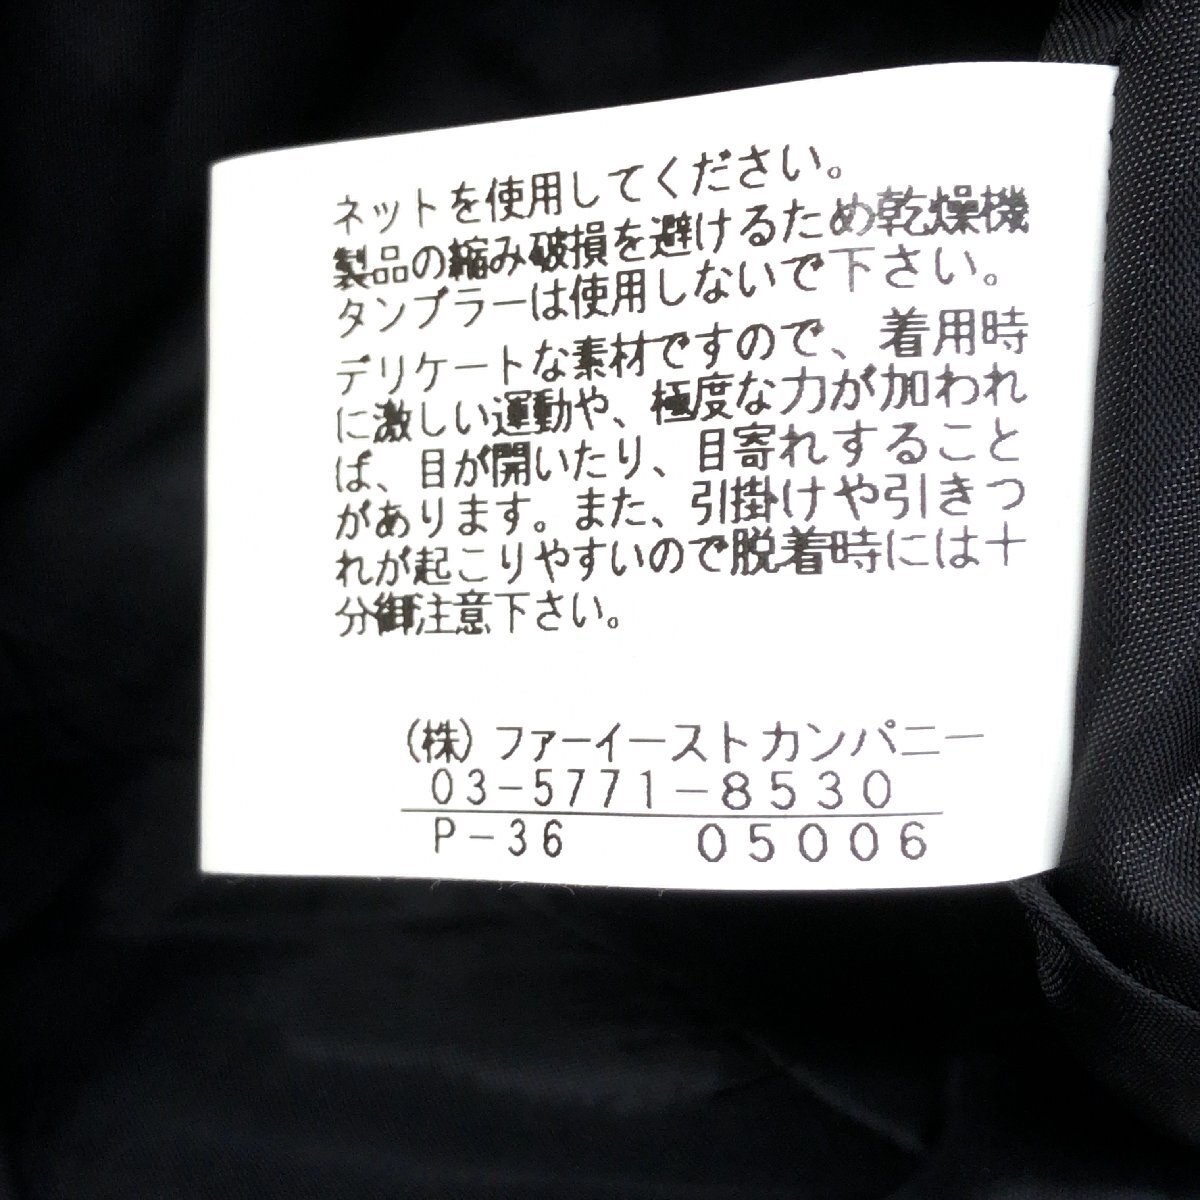 ネットを使用してください。
製品の縮み破損を避けるため乾燥機
タンブラーは使用しないで下さい。
デリケートな素材ですので、着用時
に激しい運動や、極度な力が加われ
ば、目が開いたり、目寄れすること
があります。また、引掛けや引きつ
れが起こりやすいので脱着時には十
分御注意下さい。
(株)ファーイーストカンパニー
03-5771-8530
P-36 05006